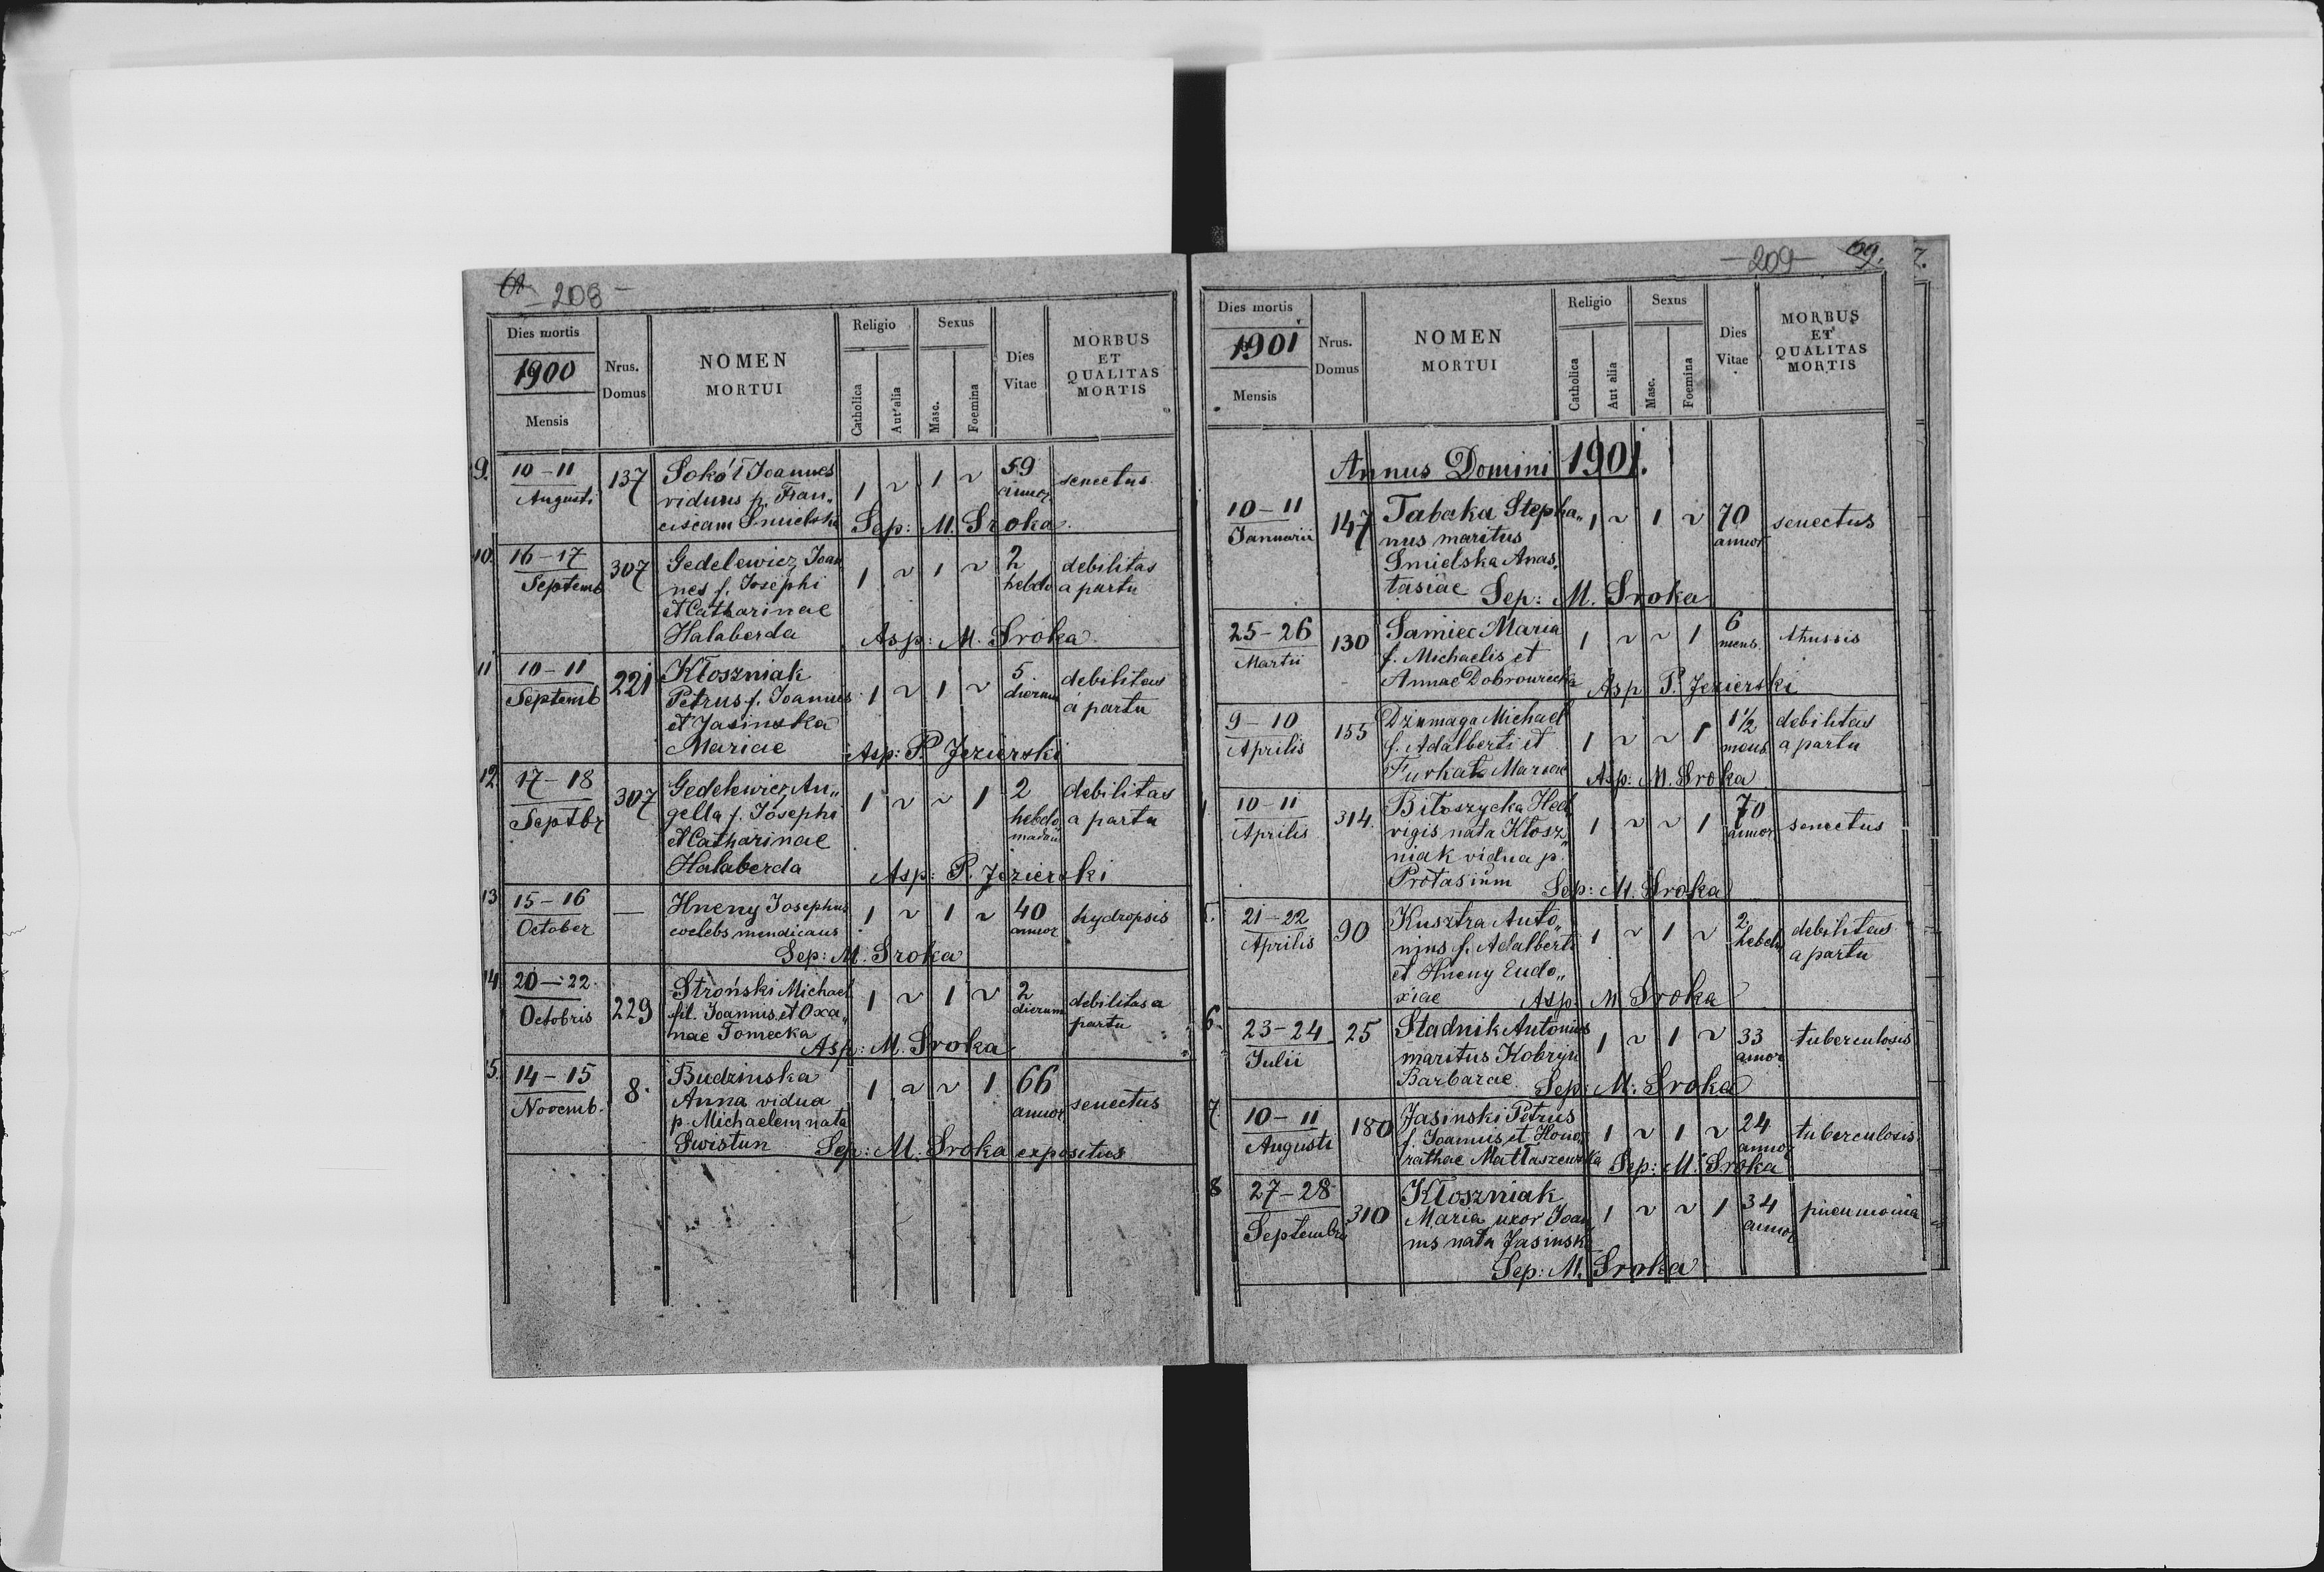 68 - 208 -
Dies mortis
1900
Mensis
Nrus.
Domus
NOMEN
MORTUI
Religio
Catholica
Aut alia
Sexus
Masc.
Foemina
Dies
Vitae
MORBUS
ET
QUALITAS
MORTIS
9. 10-11 137 Sokół Joannes 1 ~ 1 ~ 59 senectus
Augusti viduus p. Fran„ annor
ciscam Smielska Sep: M. Sroka.
10. 16-17 307 Gedelewicz Joan 1 ~ 1 ~ 2 debilitas
Septemb nes f. Josephi hebdo a partu
et Catharinae
Halaberda Asp: M. Sroka
11 10-11 221 Kłoszniak 1 ~ 1 ~ 5 debilitas
Septemb Petrus f. Joannis dierum a partu
et Jasinska
Mariae Asp: P. Jezierski
12 17-18 307 Gedelewicz An„ 1 ~ ~ 1 2 debilitas
Septbr gella f. Josephi hebdo a partu
et Catharinae madum
Halaberda Asp: P. Jezierski
13 15-16 — Hneny Josephus 1 ~ 1 ~ 40 hydropsis
October coelebs mendicans annor
Sep: M. Sroka
14 20-22. 229 Stroński Michael 1 ~ 1 ~ 2 debilitas a
Octobris fil. Joannis et Oxa„ dierum partu
nae Tomecka Asp: M. Sroka
5. 14-15 8. Budzinska 1 ~ ~ 1 66 senectus
Novemb. Anna vidua annor
p. Michaelem nata
Swistun Sep: M. Sroka expositus
- 209 - 69. 7.
Dies mortis
1901
Mensis
Nrus.
Domus
NOMEN
MORTUI
Religio
Catholica
Aut alia
Sexus
Masc.
Foemina
Dies
Vitae
MORBUS
ET
QUALITAS
MORTIS
Annus Domini 1901.
10-11 147 Tabaka Stepha„ 1 ~ 1 ~ 70 senectus
Januarii nus maritus annor
Smielska Anas„
tasiae Sep: M. Sroka
25-26 130 Samiec Maria 1 ~ ~ 1 6 thussis
Martii f. Michaelis et mens.
Annae Dobrowiecka Asp P. Jezierski
9-10 155 Dziumaga Michael 1 ~ ~ 1 1½ debilitas
Aprilis f. Adalberti et mens a partu
Furkał Mariae Asp: M. Sroka
10-11 314. Biłoszycka Hed 1 ~ ~ 1 70 senectus
Aprilis vigis nata Kłosz„ annor
niak vidua p.
Protasium Sep: M. Sroka
21-22 90 Kusztra Anto„ 1 ~ 1 ~ 2 debilitas
Aprilis nius f. Adalberti hebdo a partu
et Hneny Eudo„
xiae Asp: M. Sroka
6. 23-24 25 Stadnik Antonius 1 ~ 1 ~ 33 tuberculosis
Julii maritus Kobryn annor
Barbarae. Sep: M. Sroka
7. 10-11 180 Jasinski Petrus 1 ~ 1 ~ 24 tuberculosis
Augusti f. Joannis et Hono„ annor
rathae Matłaszewska Sep: M. Sroka
8 27-28 310 Kłoszniak 1 ~ ~ 1 34 pneumonia
Septembri Maria uxor Joan annor
nis nata Jasinska
Sep: M. Sroka